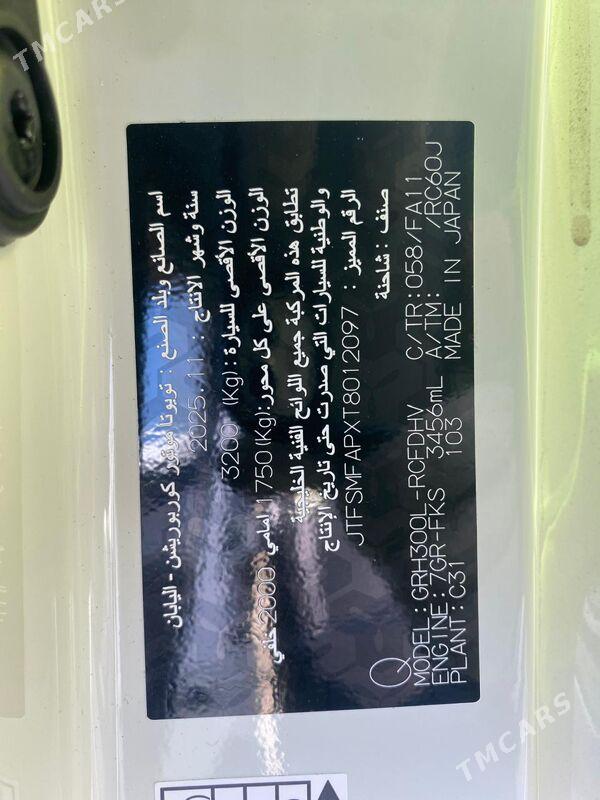 اسم الصانع وبلد الصنع : تويوتا موتور كوربوريشن - اليابان
سنة وشهر الانتاج : 2025.11
الوزن الأقصى للسيارة : 3200 (Kg)
الوزن الأقصى على كل محور: 1750(Kg) امامي 2000 خلفي
تطابق هذه المركبة جميع اللوائح الفنية الخليجية
والوطنية للسيارات التي صدرت حتى تاريخ الإنتاج
الرقم المميز : JTFSMFAPXT8012097
صنف : شاحنة
MODEL:GRH300L-RCFDHV C/TR:058/FA11
ENGINE:7GR-FKS 3456mL A/TM: /RC60J
PLANT:C31 103 MADE IN JAPAN
TMCARS
TMCARS